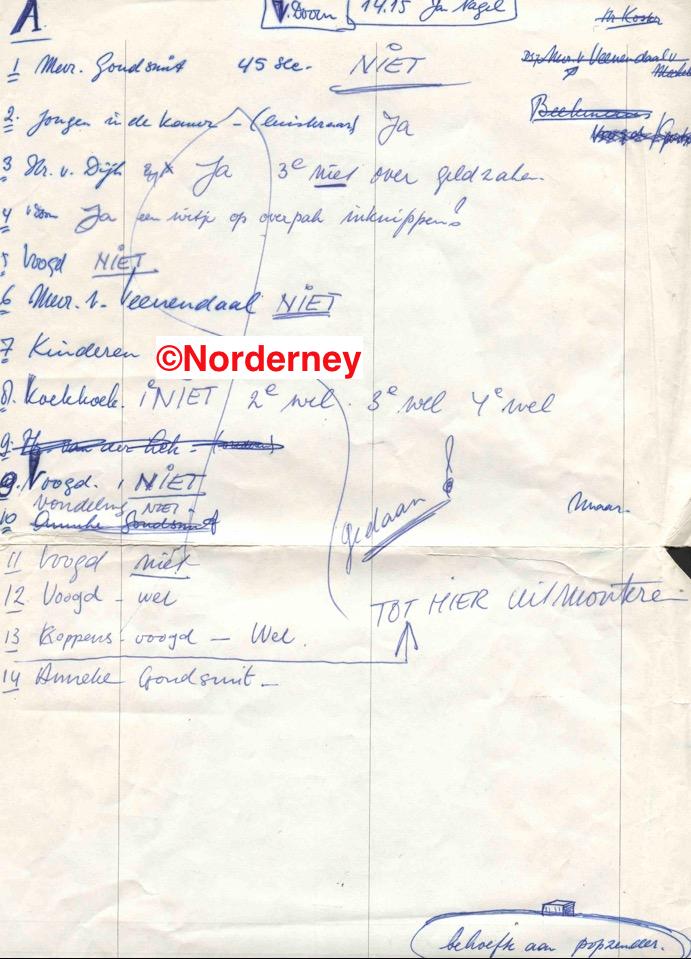 A.
V. Doorn 14.15 Jan Nagel
Hr Koster
1 Mevr. Goudsmit 45 sec. NIET
Mevr. v Veenendaal v
2. Jongen in de kamer - ( Ja
Beekmans
3 Hr. v. Dijk Ja 3e niet over geldzaken.
4 Ja een witje op overpak inknippen!
5 Voogd NIET
6 Mevr. v. Veenendaal NIET
7 Kinderen
©Norderney
8. Koekkoek. 1 NIET 2e wel. 3e wel 4e wel
9. Hr. van der Lek -
9. Voogd. NIET
vondeling NIET
10 Anneke Goudsmit
gedaan!
maar.
11 Voogd niet
12. Voogd - wel
TOT HIER uitmonteren
13 Koppens - voogd - Wel.
14 Anneke Goudsmit -
behoefte aan popzender.